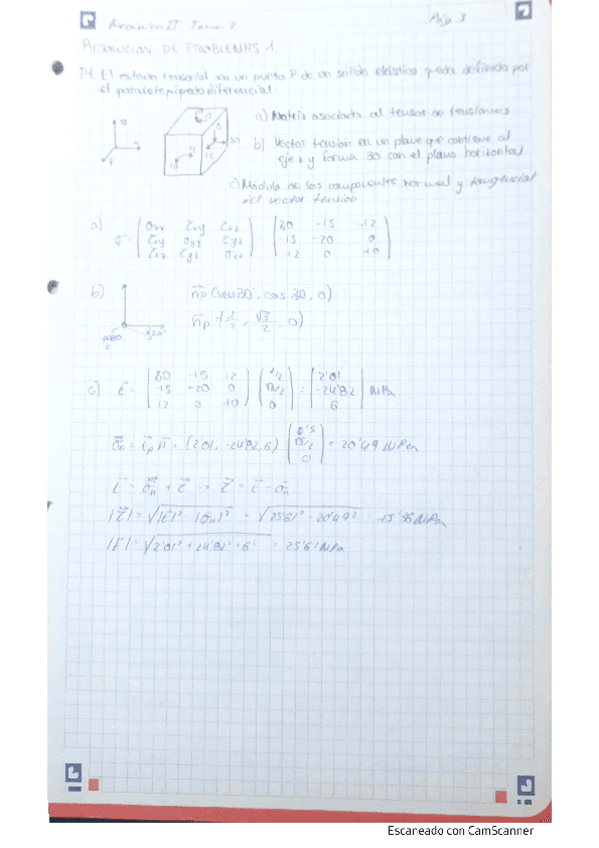 Mecánica II Tema 2 Pág 1
RESOLUCIÓN DE PROBLEMAS 1
P1. El estado tensorial en un punto P de un sólido elástico queda definido por
el paralelepípedo diferencial
a) Matriz asociada al tensor de tensiones
b) Vector tensión en un plano que contiene al
eje z y forma 30 con el plano horizontal
c) Módulo de las componentes normal y tangencial
del vector tensión
a) σ = ( σxx τxy τxz ) ( 30 -15 12 )
( τxy σyy τyz ) ( -15 -20 0 )
( τxz τyz σzz ) ( 12 0 10 )
b) n⃗p (sen 30, cos 30, 0)
n⃗p (1/2, √3/2, 0)
c) t⃗ = ( 30 -15 12 ) ( 1/2 ) = ( 2'01 )
( -15 -20 0 ) ( √3/2 ) ( -24'82 ) MPa
( 12 0 10 ) ( 0 ) ( 6 )
σ⃗n = t⃗p n⃗ = (2'01, -24'82, 6) ( 0'5 √3/2 0 ) = 20'49 MPa
t⃗ = σ⃗n + τ⃗ → τ⃗ = t⃗ - σ⃗n
|τ⃗| = √|t⃗|² - |σn|² = √25'61² - 20'49² = 15'36 MPa
|t⃗| = √2'01² + 24'82² + 6² = 25'61 MPa
Escaneado con CamScanner